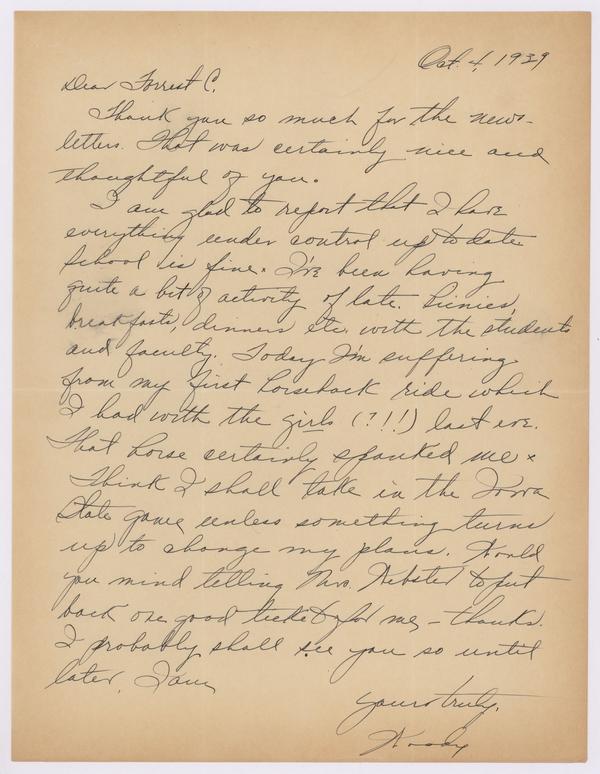 Oct. 4, 1939
Dear Forrest C.
Thank you so much for the news-
letters. That was certainly nice and
thoughtful of you.
I am glad to report that I have
everything under control up to date.
School is fine. I've been having
quite a bit of activity of late. Picnics,
breakfasts, dinners etc. with the students
and faculty. Today I'm suffering
from my first horseback ride which
I had with the girls (?!!!) last eve.
That horse certainly spanked me x
Think I shall take in the Iowa
State game unless something turns
up to change my plans. Would
you mind telling Mrs. Webster to put
back one good ticket for me, - thanks.
I probably shall see you so until
later, I am,
Yours truly,
Woody